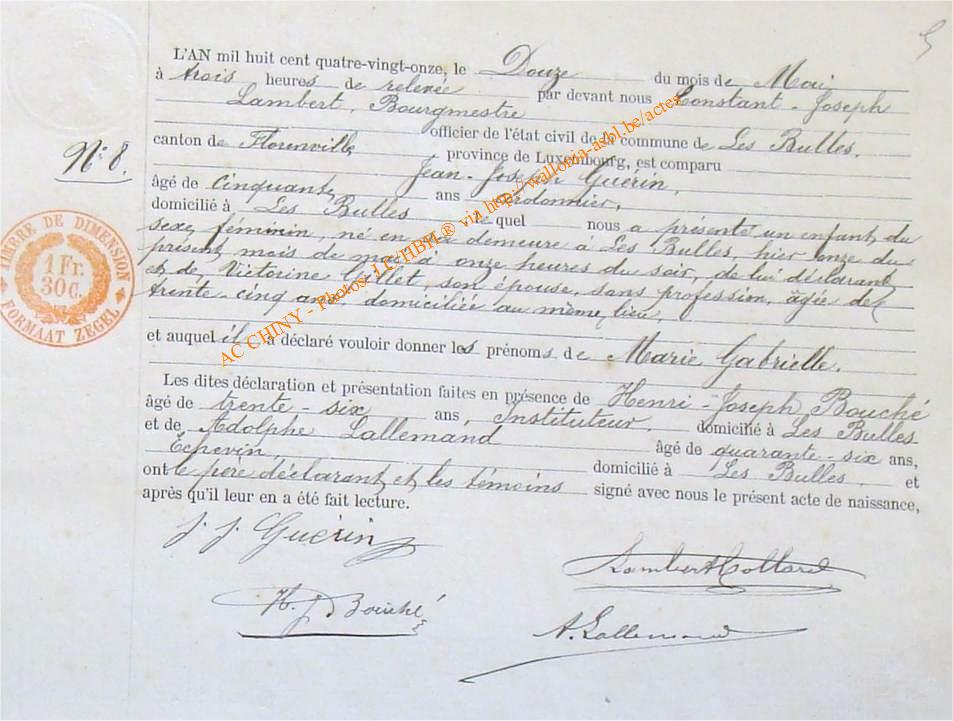 5
L'AN mil huit cent quatre-vingt-onze, le Douze du mois de Mai
à trois heures de relevée par devant nous Constant-Joseph
Lambert, Bourgmestre
officier de l'état civil de la commune de Les Bulles,
canton de Florenville, province de Luxembourg, est comparu
Jean-Joseph Guérin,
âgé de cinquante ans Cordonnier,
domicilié à Les Bulles lequel nous a présenté un enfant du
sexe féminin, né en sa demeure à Les Bulles, hier onze du
présent mois de mai à onze heures du soir, de lui déclarant
et de Victorine Gillet, son épouse, sans profession, âgée de
trente-cinq ans, domiciliée au même lieu,
et auquel il a déclaré vouloir donner les prénoms de Marie Gabrielle.
Les dites déclaration et présentation faites en présence de Henri-Joseph Bouché
âgé de trente-six ans, Instituteur, domicilié à Les Bulles
et de Adolphe Lallemand âgé de quarante-six ans,
Echevin, domicilié à Les Bulles, et
ont le père déclarant et les témoins signé avec nous le présent acte de naissance,
après qu'il leur en a été fait lecture.
J. J. Guérin
Lambert Collard
H. J. Bouché
A. Lallemand
N° 8.
TIMBRE DE DIMENSION
1 Fr.
30 C.
FORMAAT ZEGEL
AC CHINY - Photos LUXHBH ® via http://wallonia-asbl.be/actes